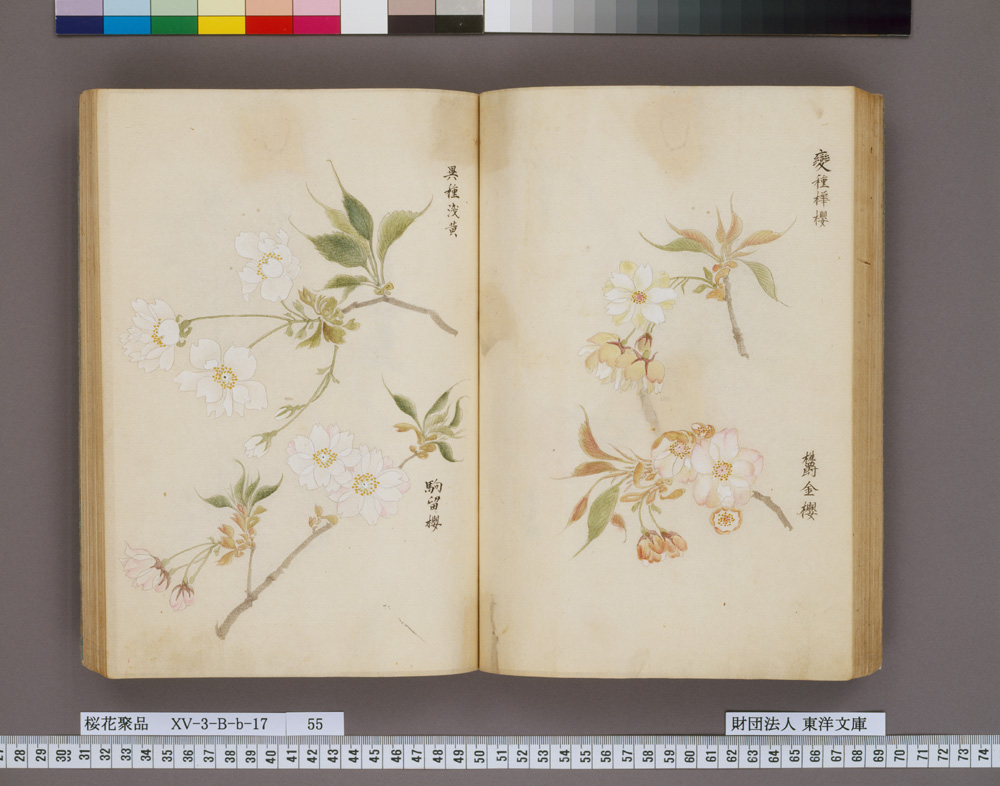 變種樺櫻
欝金櫻
異種淺黄
駒留櫻
桜花聚品 XV-3-B-b-17 55
財団法人 東洋文庫
28 29 30 31 32 33 34 35 36 37 38 39 40 41 42 43 44 45 46 47 48 49 50 51 52 53 54 55 56 57 58 59 60 61 62 63 64 65 66 67 68 69 70 71 72 73 74